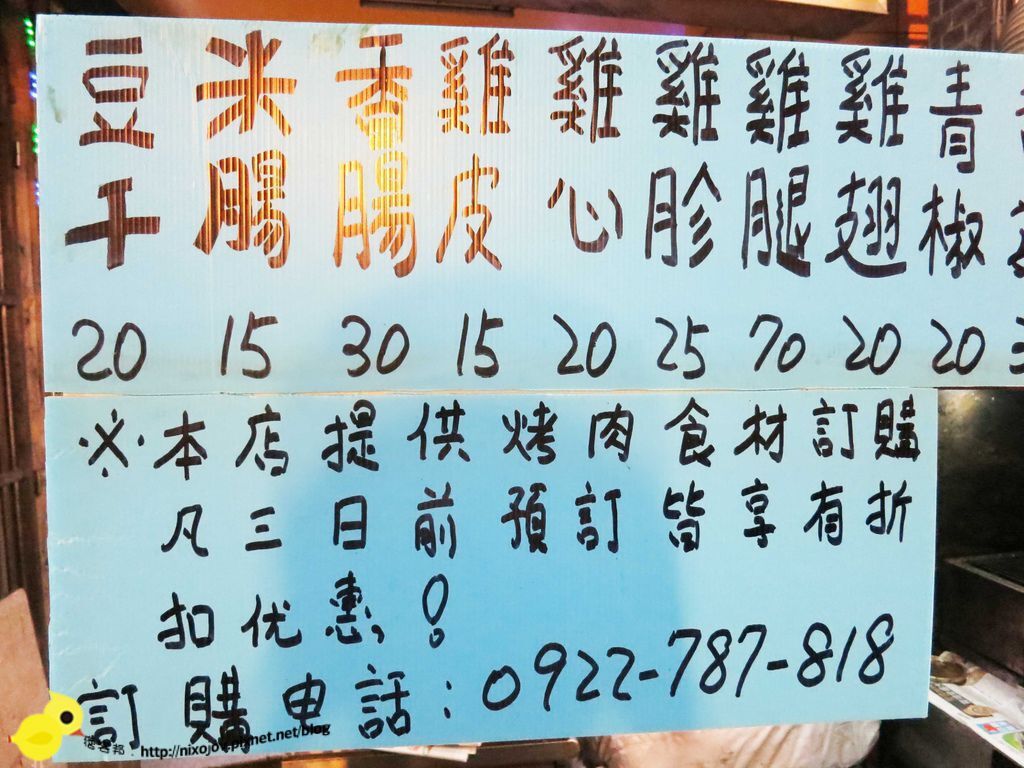 豆干 米腸 香腸 雞皮 雞心 雞胗 雞腿 雞翅 青椒
20 15 30 15 20 25 70 20 20
※本店提供烤肉食材訂購
凡三日前預訂皆享有折
扣优惠!
訂購电話:0922-787-818
http://nixojov.pixnet.net/blog